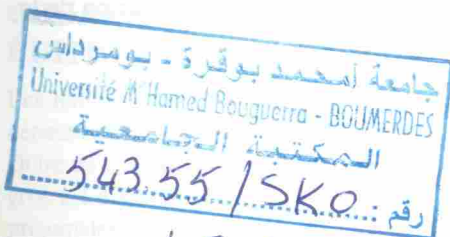 جامعة أمحمد بوقرة - بومرداس
Université M'Hamed Bouguerra - BOUMERDES
المكتبة الجامعية
رقم : 543.55 / SKO